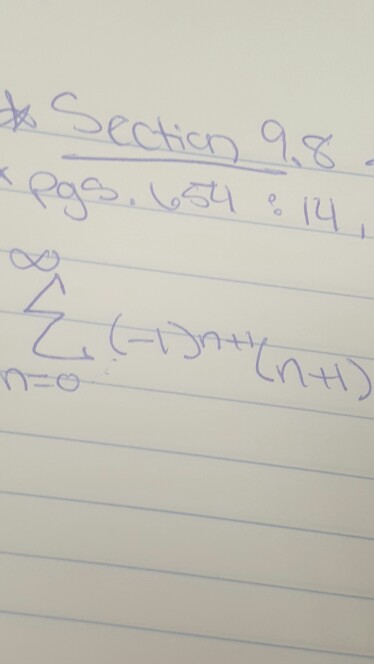 * Section 9.8
* pgs. 654 : 14,
∞
Σ (-1)n+1(n+1)
n=0